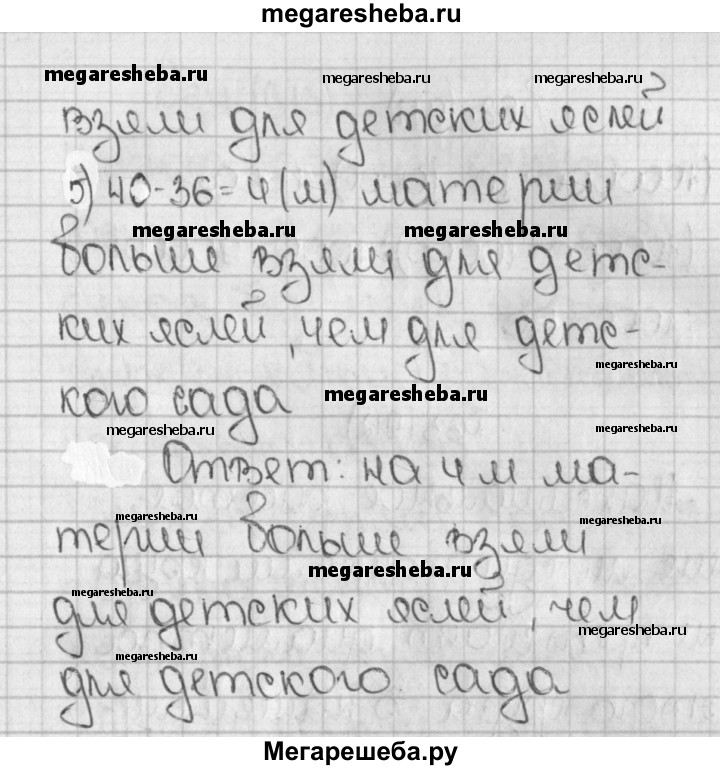 megaresheba.ru
megaresheba.ru megaresheba.ru megaresheba.ru
взяли для детских яслей
5) 40-36=4(м) материи
megaresheba.ru megaresheba.ru
больше взяли для детс-
ких яслей, чем для детс-
megaresheba.ru
megaresheba.ru
кого сада
megaresheba.ru megaresheba.ru
Ответ: на 4 м ма-
megaresheba.ru megaresheba.ru
терии больше взяли
megaresheba.ru
для детских яслей, чем
megaresheba.ru
megaresheba.ru
для детского сада
Мегарешеба.ру